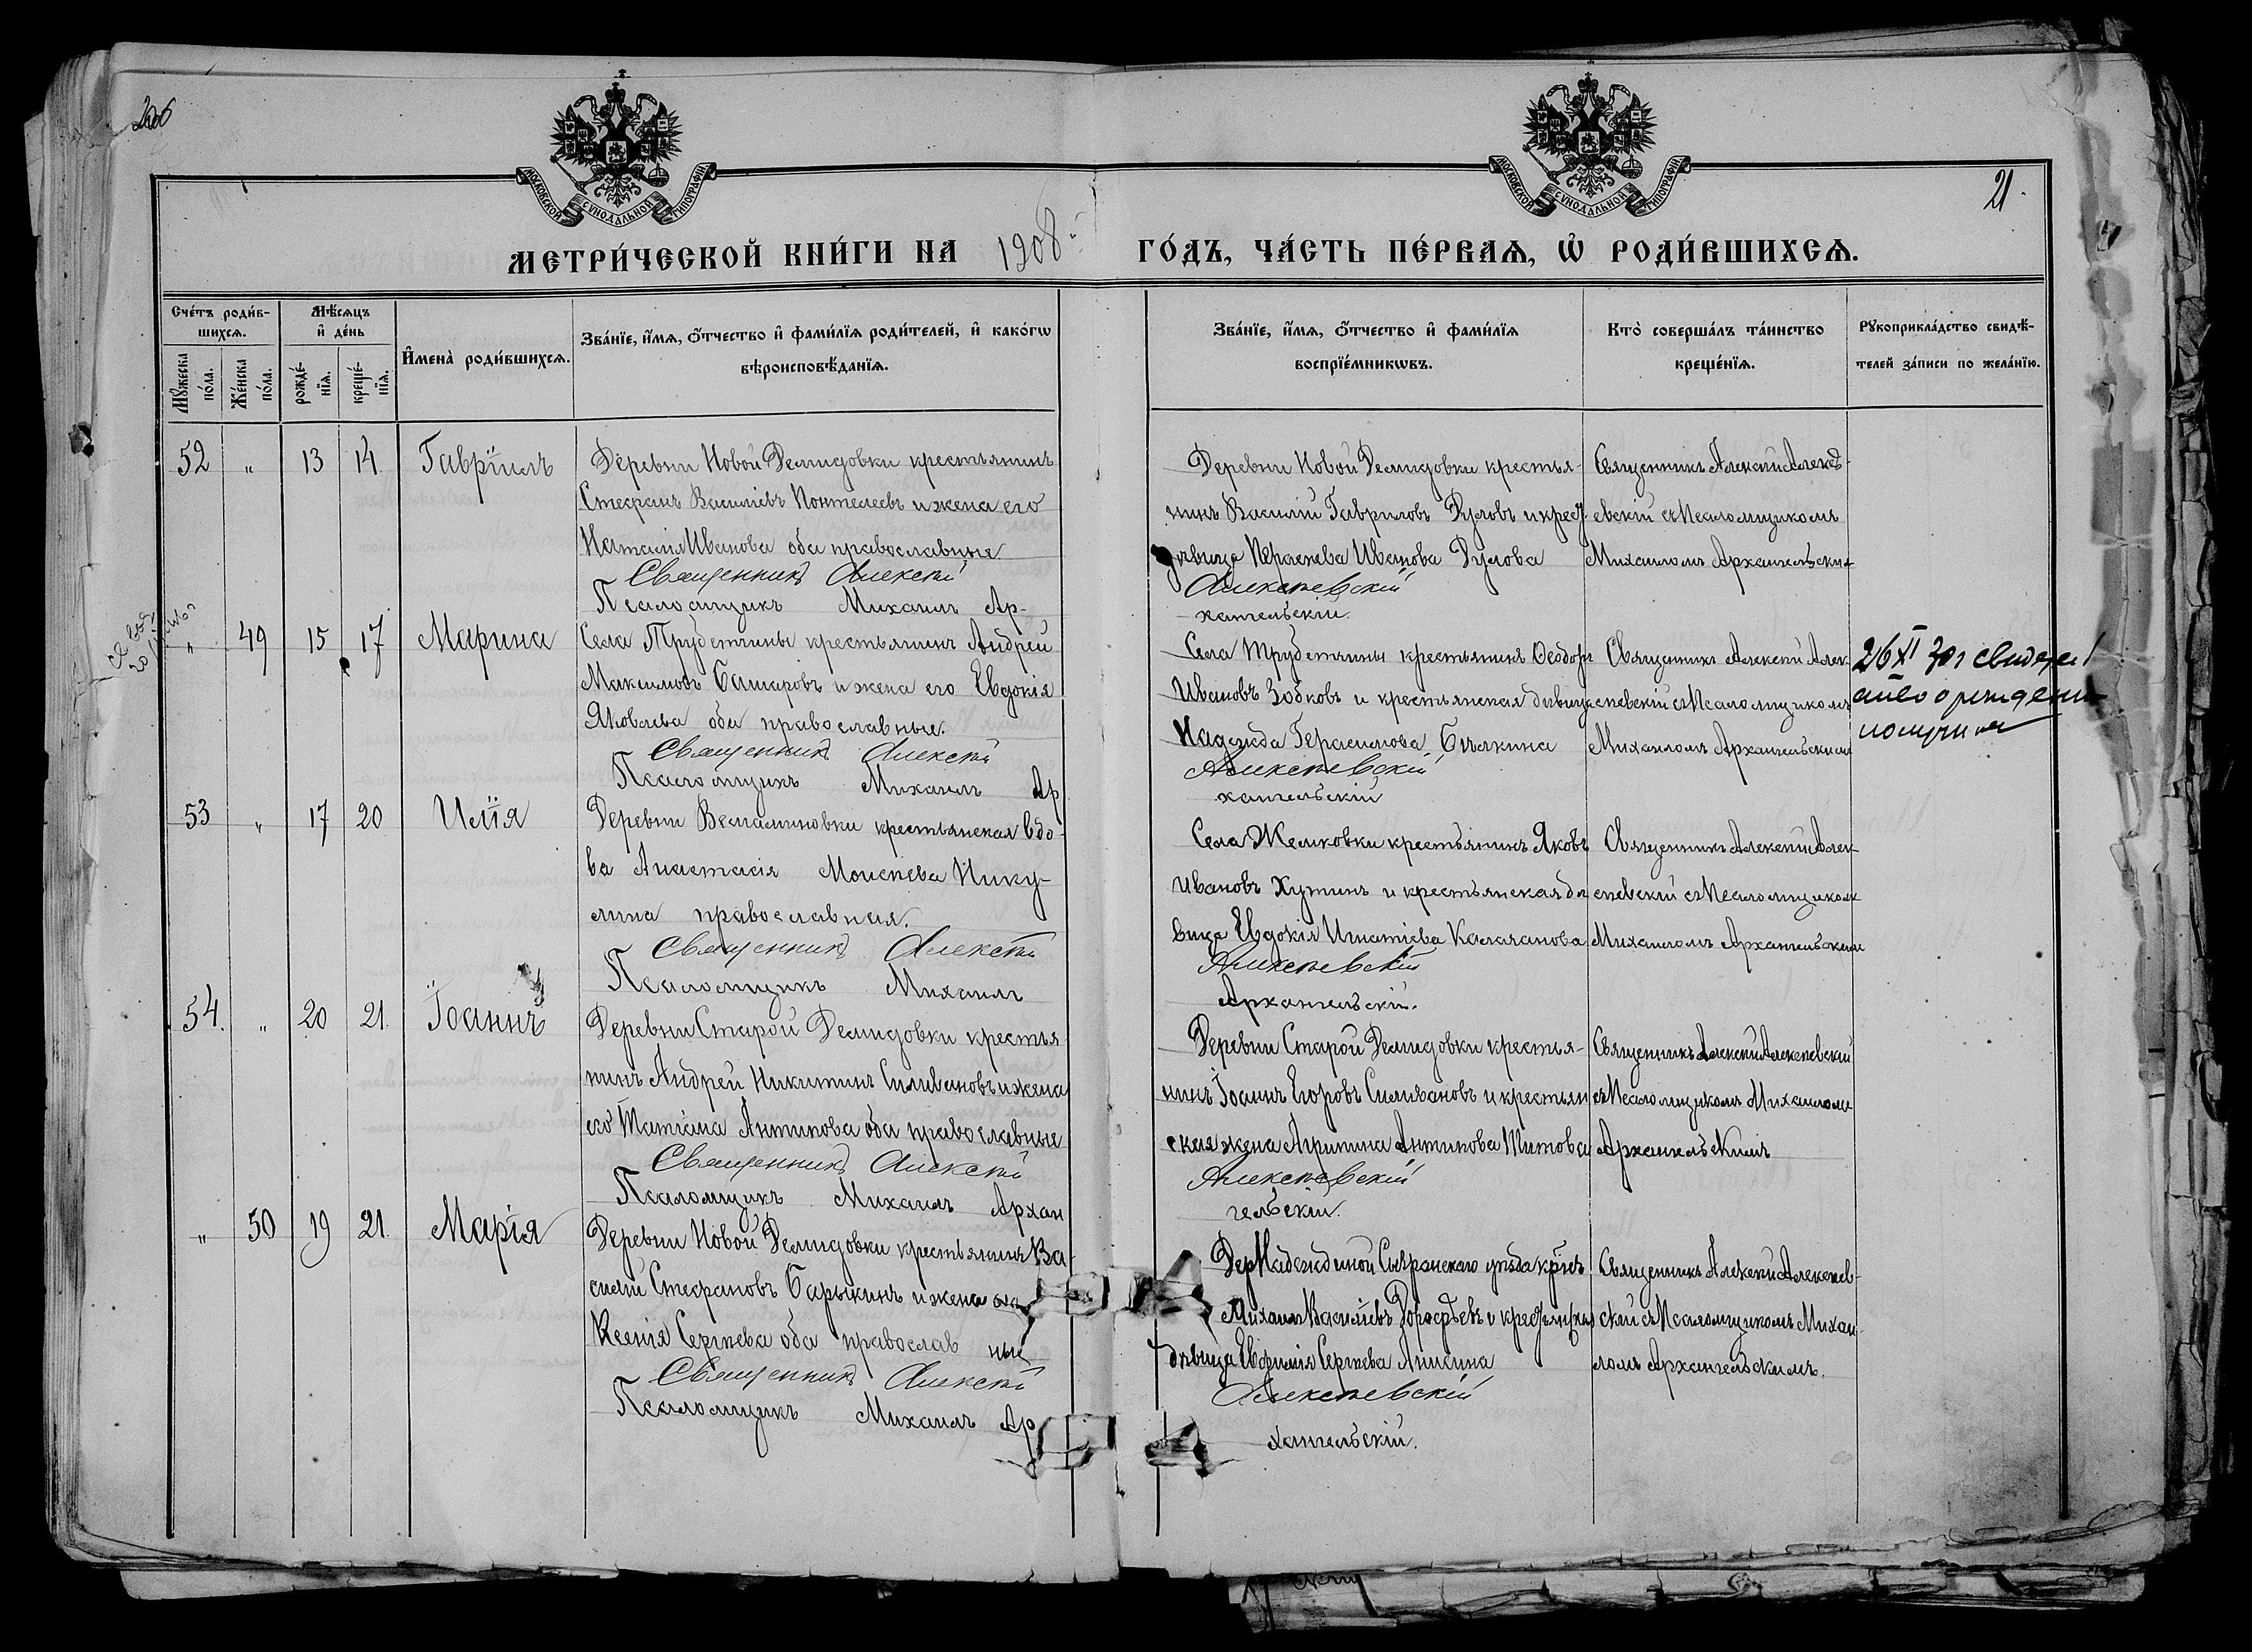 206
МОСКОВСКОЙ СУНОДАЛЬНОЙ ТИПОГРАФІИ
МОСКОВСКОЙ СУНОДАЛЬНОЙ ТИПОГРАФІИ
21.
МЕТРИ́ЧЕСКОЙ КНИ́ГИ НА 1908 ГО́ДЪ, ЧА́СТЬ ПЕ́РВАѦ, Ѡ҆ РОДИ́ВШИХСѦ.
Сче́тъ роди́в-
шихсѧ.
Мꙋ́жеска по́ла.
Же́нска по́ла.
Мѣ́сѧцъ
и҆ де́нь
рожде́-
нїѧ.
креще́-
нїѧ.
И҆мена̀ роди́вшихсѧ.
Зва́нїе, и҆́мѧ, ѻ҆́тчество и҆ фами́лїѧ роди́телей, и҆ како́гѡ
вѣроисповѣ́данїѧ.
Зва́нїе, и҆́мѧ, ѻ҆́тчество и҆ фами́лїѧ
воспрїе́мникѡвъ.
Кто̀ соверша́лъ та́инство
креще́нїѧ.
Рꙋкоприкла́дство свидѣ́-
телей за́писи по жела́нїю.
52 " 13 14 Гавріилъ
Деревни Новой Демидовки крестьянинъ
Стефанъ Василіевъ Понтелеевъ и жена его
Наталія Иванова оба православные
Священникъ Алексій
Псаломщикъ Михаилъ Ар-
Деревни Новой Демидовки крестья-
нинъ Василій Гавриловъ Дуловъ и крест
дѣвица Параскева Иванова Дулова
Алексѣевскій
хангельскій.
Священникъ Алексій Алексѣ-
евскій съ Псаломщикомъ
Михаиломъ Архангельским
" 49 15 17 Марина
Села Трубетчины крестьянинъ Андрей
Максимовъ Башаровъ и жена его Евдокія
Яковлева оба православные.
Священникъ Алексій
Псаломщикъ Михаилъ Ар
Села Трубетчины крестьянинъ Ѳеодоръ
Ивановъ Зобковъ и крестьянская дѣвица
Надежда Герасимова Бѣлкина
Алексѣевскій
хангельскій
Священникъ Алексій Алек-
сѣевскій съ Псаломщикомъ
Михаиломъ Архангельским
26 XI
получил
53 " 17 20 Илія
Деревни крестьянская вдо-
ва Анастасія Моисѣева Нику-
лина православная.
Священникъ Алексій
Псаломщикъ Михаилъ
Села Жемковки крестьянинъ Яковъ
Ивановъ Хутинъ и крестьянская дѣ
вица Евдокія Игнатіева Калачанова
Алексѣевскій
Архангельскій.
Священникъ Алексій Алек
сѣевскій съ Псаломщиком
Михаиломъ Архангельским
54. " 20 21. Іоаннъ
Деревни Старой Демидовки крестья
нинъ Андрей Никитинъ Силивановъ и жена
его Татіана Антипова оба православные
Священникъ Алексій
Псаломщикъ Михаилъ Архан
Деревни Старой Демидовки крестья-
нинъ Іоаннъ Егоровъ Силивановъ и крестьян
ская жена Агрипина Антипова Титова
Алексѣевскій
гельскій.
Священникъ Алексій Алексѣевскій
съ Псаломщикомъ Михаиломъ
Архангельскимъ
" 50 19 21. Марія
Деревни Новой Демидовки крестьянинъ Ва-
силій Стефановъ Барыкинъ и жена его
Ксенія Сергѣева оба православ ные
Священникъ Алексій
Псаломщикъ Михаилъ Ар
Дер Надеждиной Сызранскаго уѣзда
Михаилъ Василіевъ Дорофѣевъ и крестьянская
дѣвица Евфимія Сергѣева Аникина
Алексѣевскій
хангельскій.
Священникъ Алексій Алексѣев-
скій съ Псаломщикомъ Михаи-
ломъ Архангельскимъ.